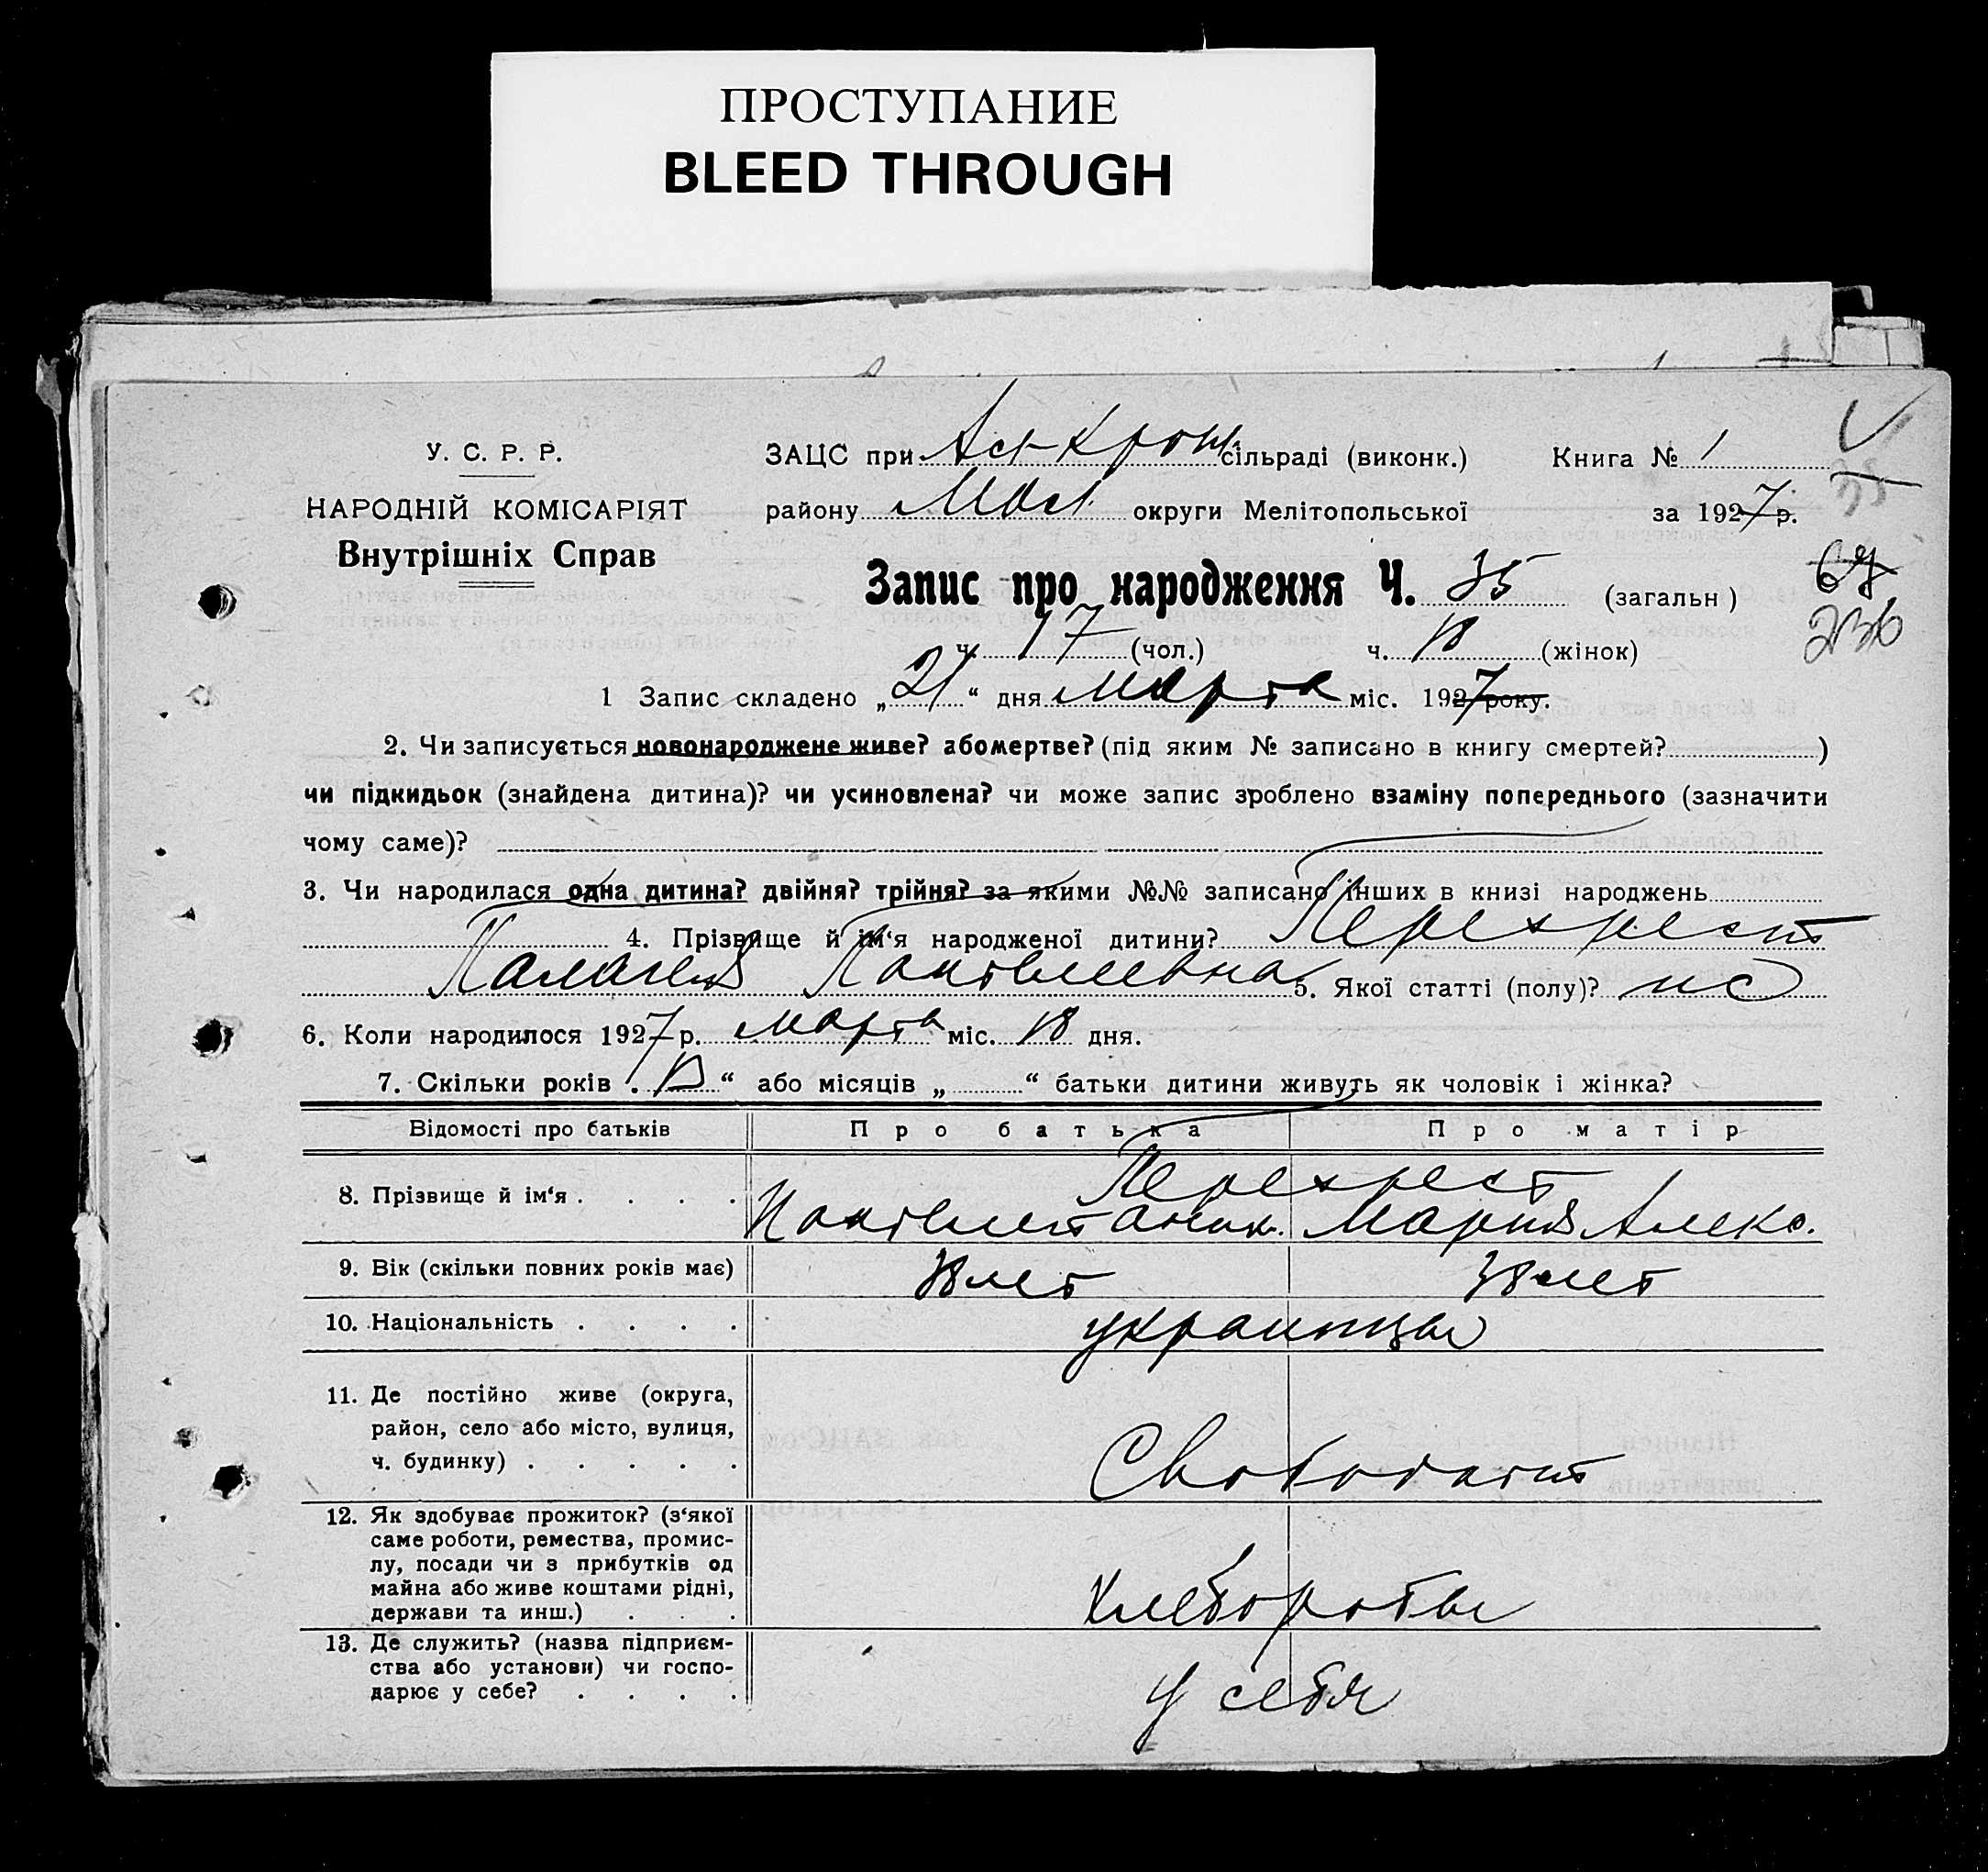 ПРОСТУПАНИЕ
BLEED THROUGH
У. С. Р. Р.
НАРОДНІЙ КОМІСАРІЯТ
Внутрішніх Справ
ЗАЦС при сільраді (виконк.) Книга № 1
району округи Мелітопольської за 1927 р.
Запис про народження Ч. 35 (загальн)
236
ч. 17 (чол.) ч. 18 (жінок)
1 Запис складено „21“ дня марта міс. 1927 року.
2. Чи записується новонароджене живе? або мертве? (під яким № записано в книгу смертей? )
чи підкидьок (знайдена дитина)? чи усиновлена? чи може запис зроблено взаміну попереднього (зазначити
чому саме)?
3. Чи народилася одна дитина? двійня? трійня? за якими №№ записано інших в книзі народжень
4. Прізвище й ім‘я народженої дитини? Перехрест
Палагея 5. Якої статті (полу)?
6. Коли народилося 1927 р. марта міс. 18 дня.
7. Скільки років „ “ або місяців „ “ батьки дитини живуть як чоловік і жінка?
Відомості про батьків Про батька Про матір
8. Прізвище й ім‘я . . . . Перехрест
Мария Алекс.
9. Вік (скільки повних років має) 38 лет 38 лет
10. Національність . . . . украинцы
11. Де постійно живе (округа,
район, село або місто, вулиця,
ч. будинку) . . . . .
12. Як здобуває прожиток? (з‘якої
саме роботи, ремества, промис-
лу, посади чи з прибутків од
майна або живе коштами рідні,
держави та инш.) . . .
хлеборобы
13. Де служить? (назва підприєм-
ства або установи) чи госпо-
дарює у себе? . . . .
у себя